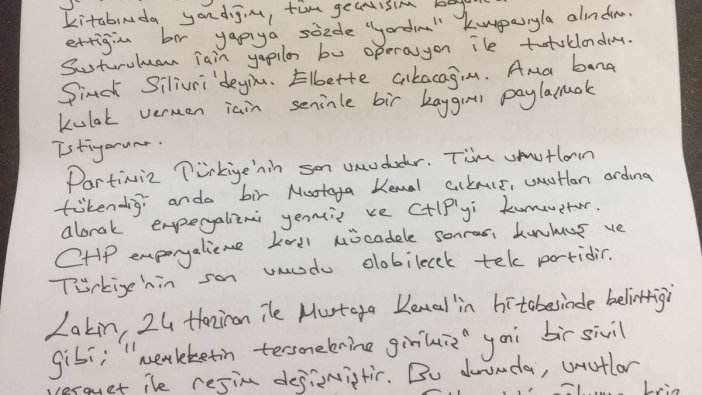 kitabımda yazdığım, tüm geçmişim
ettiğim bir yapıya sözde "yardım" kumpasıyla alındım.
Susturulmam için yapılan bu operasyon ile tutuklandım.
Şimdi Silivri'deyim. Elbette çıkacağım. Ama bana
kulak vermen için seninle bir kaygımı paylaşmak
istiyorum.
Partimiz Türkiye'nin son umududur. Tüm umutların
tükendiği anda bir Mustafa Kemal çıkmış, umutları ardına
alarak emperyalizmi yenmiş ve CHP'yi kurmuştur.
CHP emperyalizme karşı mücadele sonrası kurulmuş ve
Türkiye'nin son umudu olabilecek tek partidir.
Lakin, 24 Haziran ile Mustafa Kemal'in hitabesinde belirttiği
gibi; "memleketin tersanelerine girilmiş" yani bir sivil
vesayet ile rejim değişmiştir. Bu durumda, umutlar